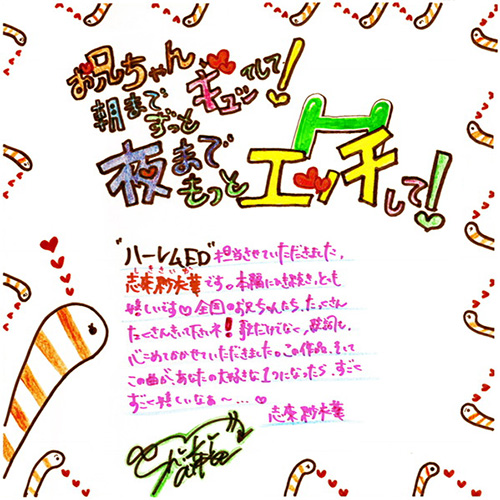 お兄ちゃん
朝まで
ずっと
ギュッてして!
夜まで
もっと
エッチして!
"ハーレムED"担当させていただきました、
です。本編にひき続き、とても
嬉しいです♡全国のお兄ちゃんたち、たくさん
たくさんきいて下さいネ!歌だけでなく、歌詞も、
心こめてかかせていただきました。この作品、そして
この曲が、あなたの大好きな1つになったら、すごく
すごく嬉しいなぁ〜…♡